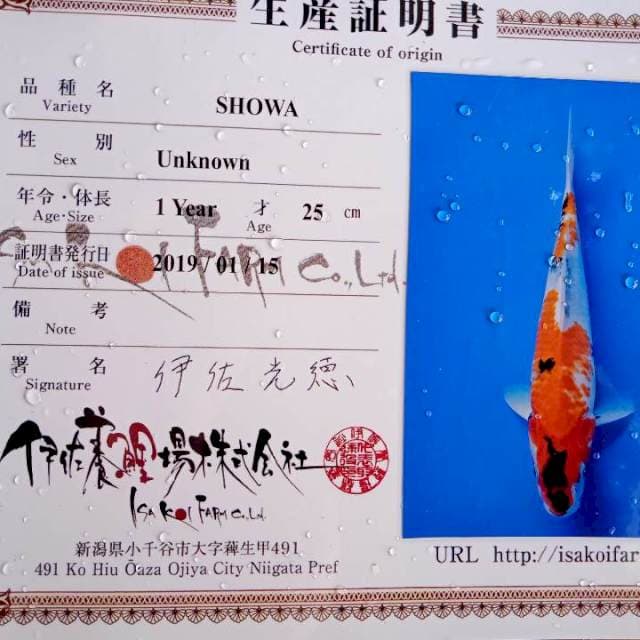 生産証明書
Certificate of origin
品種名
Variety
SHOWA
性別
Sex
Unknown
年令・体長
Age・Size
1 Year 才 25 cm
Age
証明書発行日
Date of issue
2019/01/15
Koi Farm Co., Ltd.
備考
Note
署名
Signature
伊佐光徳
伊佐養鯉場株式会社
Isa Koi Farm Co., Ltd.
新潟県小千谷市大字薭生甲491
491 Ko Hiu Ōaza Ojiya City Niigata Pref
URL http://isakoifar